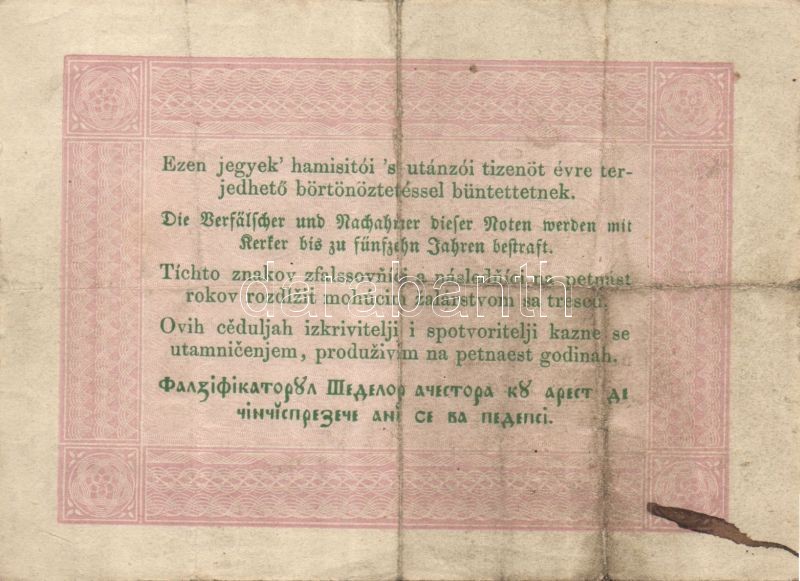 Ezen jegyek' hamisitói 's utánzói tizenöt évre ter-
jedhető börtönöztetéssel büntettetnek.
Die Verfälscher und Nachahmer dieser Noten werden mit
Kerker bis zu fünfzehn Jahren bestraft.
Tíchto znakov zfalssovňíci a následňíci na petnást
rokov rozdĺžit mohúcim žalárstvom sa trescú.
Ovih cěduljah izkrivitelji i spotvoritelji kazne se
utamničenjem, produživim na petnaest godinah.
Фалꙁіфікаторꙋл Шеделор ачестора кꙋ арест де
чінчіспреꙁече ані се ва педепсі.
darabanth